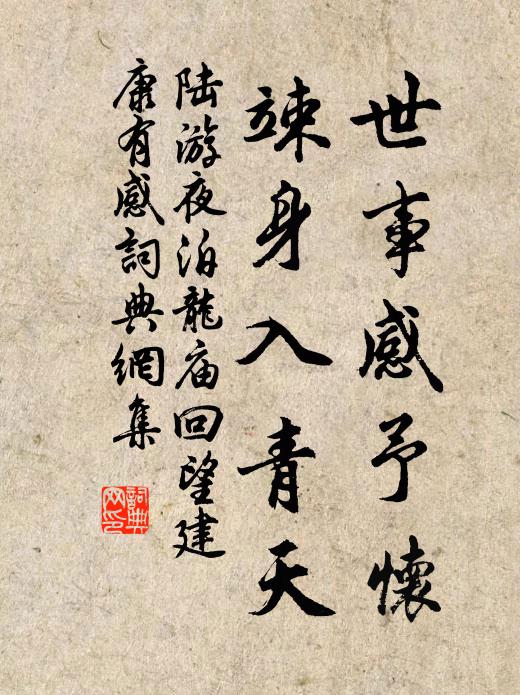 世事感予懷
竦身入青天
陆游夜泊龍庙回望建
康有感詞典網集
詞典
网印